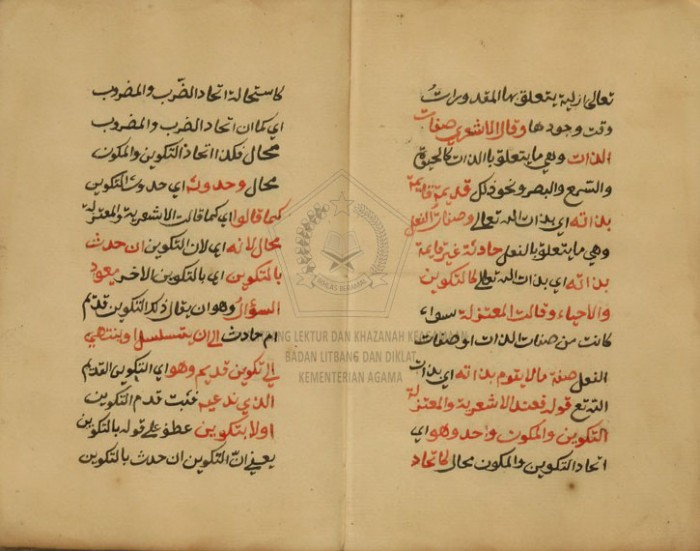 تعالى ازلية يتعلق بها المقدورات
وقت وجودها وقال الاشعري صفات
الذات وهي ما يتعلق بالذات كالحيوة
والسمع والبصر ونحو ذلك قديمة قايمة
بذاته اي بذات الله تعالى وصفات الفعل
وهي ما يتعلق بالفعل حادثة غير قايمة
بذاته اي بذات الله تعالى كالتكوين
والاحياء وقالت المعتزلة سواء
كانت من صفات الذات او صفات
الفعل صفة ما لا يقوم بذاته اي بذات
الله تع قوله فعند الاشعرية والمعتزلة
التكوين والمكون واحد وهو اي
اتحاد التكوين والمكون محال كاتحاد
كاستحالة اتحاد الضرب والمضروب
اي كما ان اتحاد الضرب والمضروب
محال فكذا اتحاد التكوين والمكون
محال وحدوثه اي حدوث التكوين
كما قالوا اي كما قالت الاشعرية والمعتزلة
محال لانه اي لان التكوين ان حدث
بالتكوين اي بالتكوين الآخر يعود
السؤال وهو ان يقال ذلك التكوين قديم
ام حادث الى ان يتسلسل او ينتهي
الى تكوين قديم وهو اي التكوين القديم
الذي ندعيه فثبت قدم التكوين
اولا بتكوين عطف على قوله بالتكوين
يعني ان التكوين ان حدث بالتكوين
LEKTUR DAN KHAZANAH
BADAN LITBANG DAN DIKLAT
KEMENTERIAN AGAMA